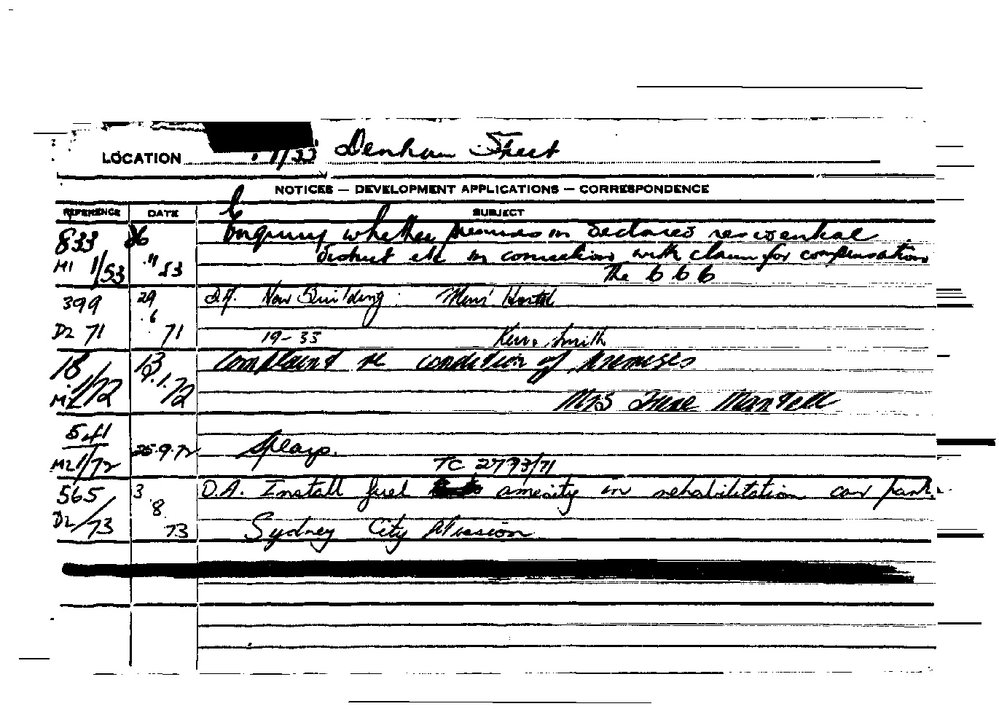 LOCATION /33 Denham Street
NOTICES — DEVELOPMENT APPLICATIONS — CORRESPONDENCE
REFERENCE DATE SUBJECT
833 26 Enquiry whether premises in declared residential
M1 1/53 11 53 district etc in connection with claim for compensation
The 666
399 29 D.A. New Building: Mens' Hostel
6
D2 71 71 19-33 Smith
18 13 Complaint re condition of premises
M2 1/72 1.72 Mrs June
541
M2 1/72 25.9.72
TC 2793/71
565 3 D.A. Install fuel amenity in rehabilitation car park.
D2/73 8 73 Sydney City Mission